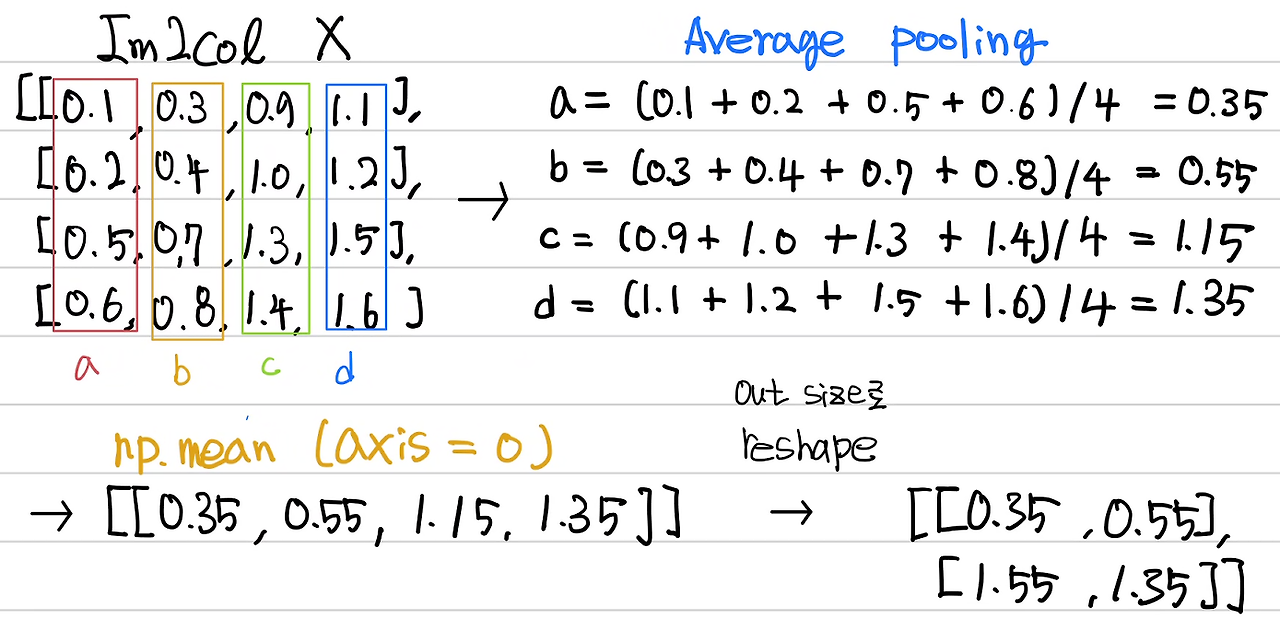 Im2Col X
[[0.1, 0.3, 0.9, 1.1],
[0.2, 0.4, 1.0, 1.2],
[0.5, 0.7, 1.3, 1.5],
[0.6, 0.8, 1.4, 1.6]
a b c d
→
Average pooling
a = (0.1 + 0.2 + 0.5 + 0.6)/4 = 0.35
b = (0.3 + 0.4 + 0.7 + 0.8)/4 = 0.55
c = (0.9 + 1.0 + 1.3 + 1.4)/4 = 1.15
d = (1.1 + 1.2 + 1.5 + 1.6)/4 = 1.35
np.mean (axis = 0)
→ [[0.35, 0.55, 1.15, 1.35]]
out size로
reshape
→
[[0.35, 0.55],
[1.55, 1.35]]